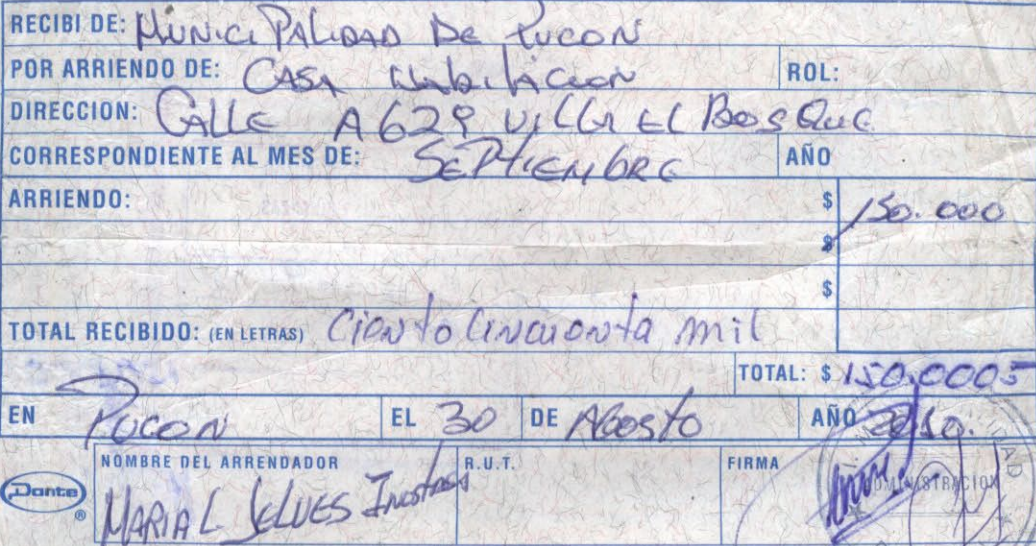 RECIBI DE: MUNICIPALIDAD DE PUCON
POR ARRIENDO DE: CASA Habitacion ROL:
DIRECCION: CALLE A 629 VILLA EL BOSQUE
CORRESPONDIENTE AL MES DE: SEPTIEMBRE AÑO
ARRIENDO: $ 150.000
$
$
TOTAL RECIBIDO: (EN LETRAS) Ciento Cincuenta mil
TOTAL: $ 150.000
EN PUCON EL 30 DE Agosto AÑO 2010.
NOMBRE DEL ARRENDADOR R.U.T. FIRMA
Dante ®
MARIA L
ADMINISTRACION